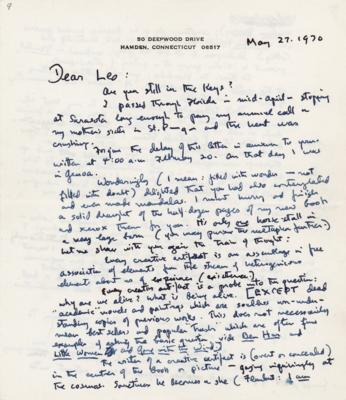 9
50 DEEPWOOD DRIVE
HAMDEN, CONNECTICUT 06517
May 27. 1970
Dear Leo:
Are you still in the Keys?
I passed through Florida in mid-april – stopping
at Sarasota long enough to pay my annual call on
my mother's sister in St. P–g – and the heat was
crushing.
Forgive the delay of this letter in answer to yours
written at 4:00 a.m. February 20. On that day I was
in Genoa.
Wonderingly (I mean: filled with wonder – not
filled with doubt) delighted that you had also contemplated
and even made mandalas. I must hurry and finish
a solid draught of the half-dozen pages of my new book
and xerox them for you. It's only one horse-stall in
a very large barn (you may pursue the metaphor further.)
Let me share with you again the train of thought:
Every creative artifact is an assemblage in free
association of elements from the stream of heterogeneous
elements about us of experience (existence).
Every creative artifact is a probe into the question:
"why are we alive? What is being alive." [EXCEPT dead
"academic" novels and paintings which are soulless un-under-
standing copies of previous works. This does not necessarily
mean "best sellers and popular trash" which are often fine
examples of asking the basic question vide Ben Hur and
Little Women and Gone with the Wind]
The writer of a creative artifact is (overt or concealed)
in the center of the book or picture – gazing inquiringly at
the cosmos. Sometimes he becomes a she (Flaubert: I am